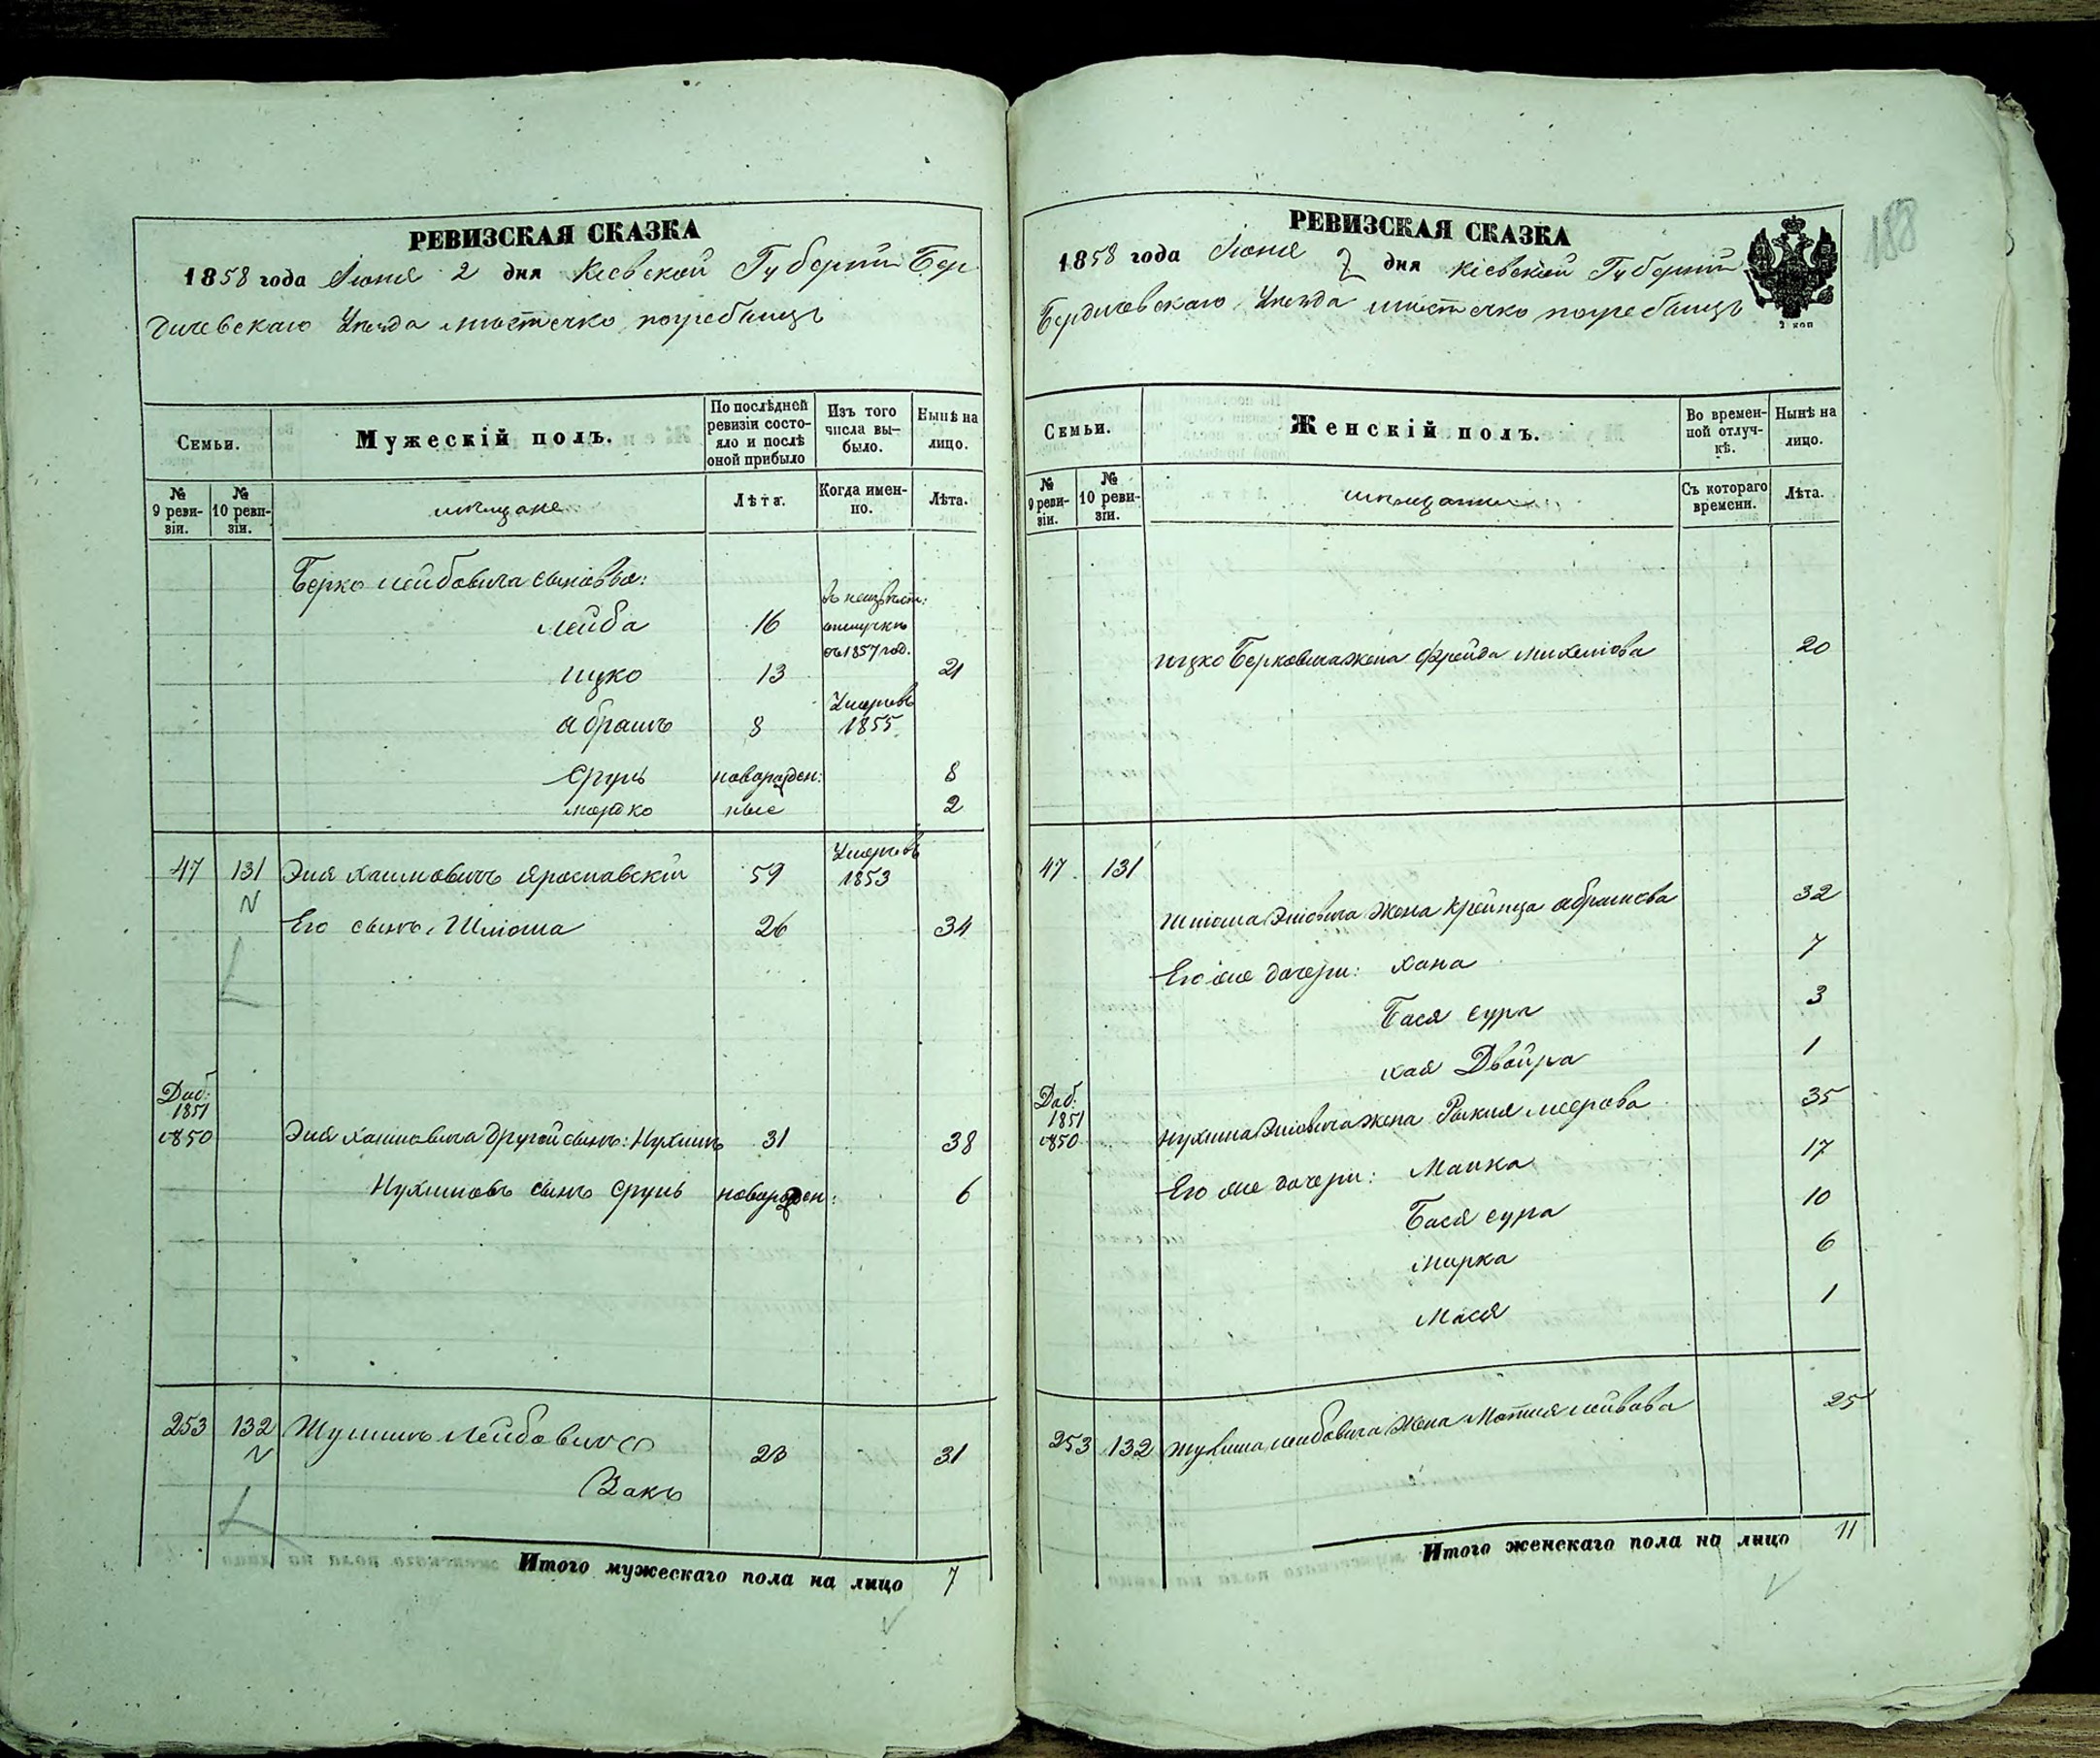 РЕВИЗСКАЯ СКАЗКА
1858 года Іюня 2 дня Кіевской Губерніи Бер
дичевскаго Уезда местечко погребищъ
Семьи.
Мужескій полъ.
По послѣдней ревизіи состояло и послѣ оной прибыло
Изъ того числа выбыло.
Нынѣ на лицо.
№ 9 ревизіи.
№ 10 ревизіи.
мещане
Лѣта.
Когда именно.
Лѣта.
Берко лейбовича сыновья:
лейба 16 въ неизвест: отлучке съ 1857 год.
ицко 13 21
абрамъ 8 Умеръ въ 1855
сруль новорожден: 8
мордко ные 2
47 131 Эля хаимовичъ ярославскій 59 Умеръ въ 1853
N Его сынъ Шлiома 26 34
Доб: 1851 №850 Эля хаимовича другой сынъ: Нухимъ 31 38
Нухимовъ сынъ сруль новорожден: 6
253 132 Шулимъ лейбовичъ 23 31
N Закъ
Итого мужескаго пола на лицо 7
188
РЕВИЗСКАЯ СКАЗКА
1858 года Іюня 2 дня Кіевской Губерніи
Бердичевскаго Уезда местечко погребищъ
2 коп
Семьи.
Женскій полъ.
Во временной отлучкѣ.
Нынѣ на лицо.
№ 9 ревизіи.
№ 10 ревизіи.
мещанки
Съ котораго времени.
Лѣта.
ицко Берковича жена фрейда михелiова 20
47 131
шлiома Элiовича жена крейнца абрамова 32
Его же дочери: хана 7
Бася сура 3
хая Двойра 1
Доб: 1851 №850 нухима Элiовича жена Рыкля меерова 35
Его же дочери: Малка 17
Бася сура 10
мирка 6
Мася 1
253 132 шулима лейбовича жена Мотля лейбова 25
Итого женскаго пола на лицо 11